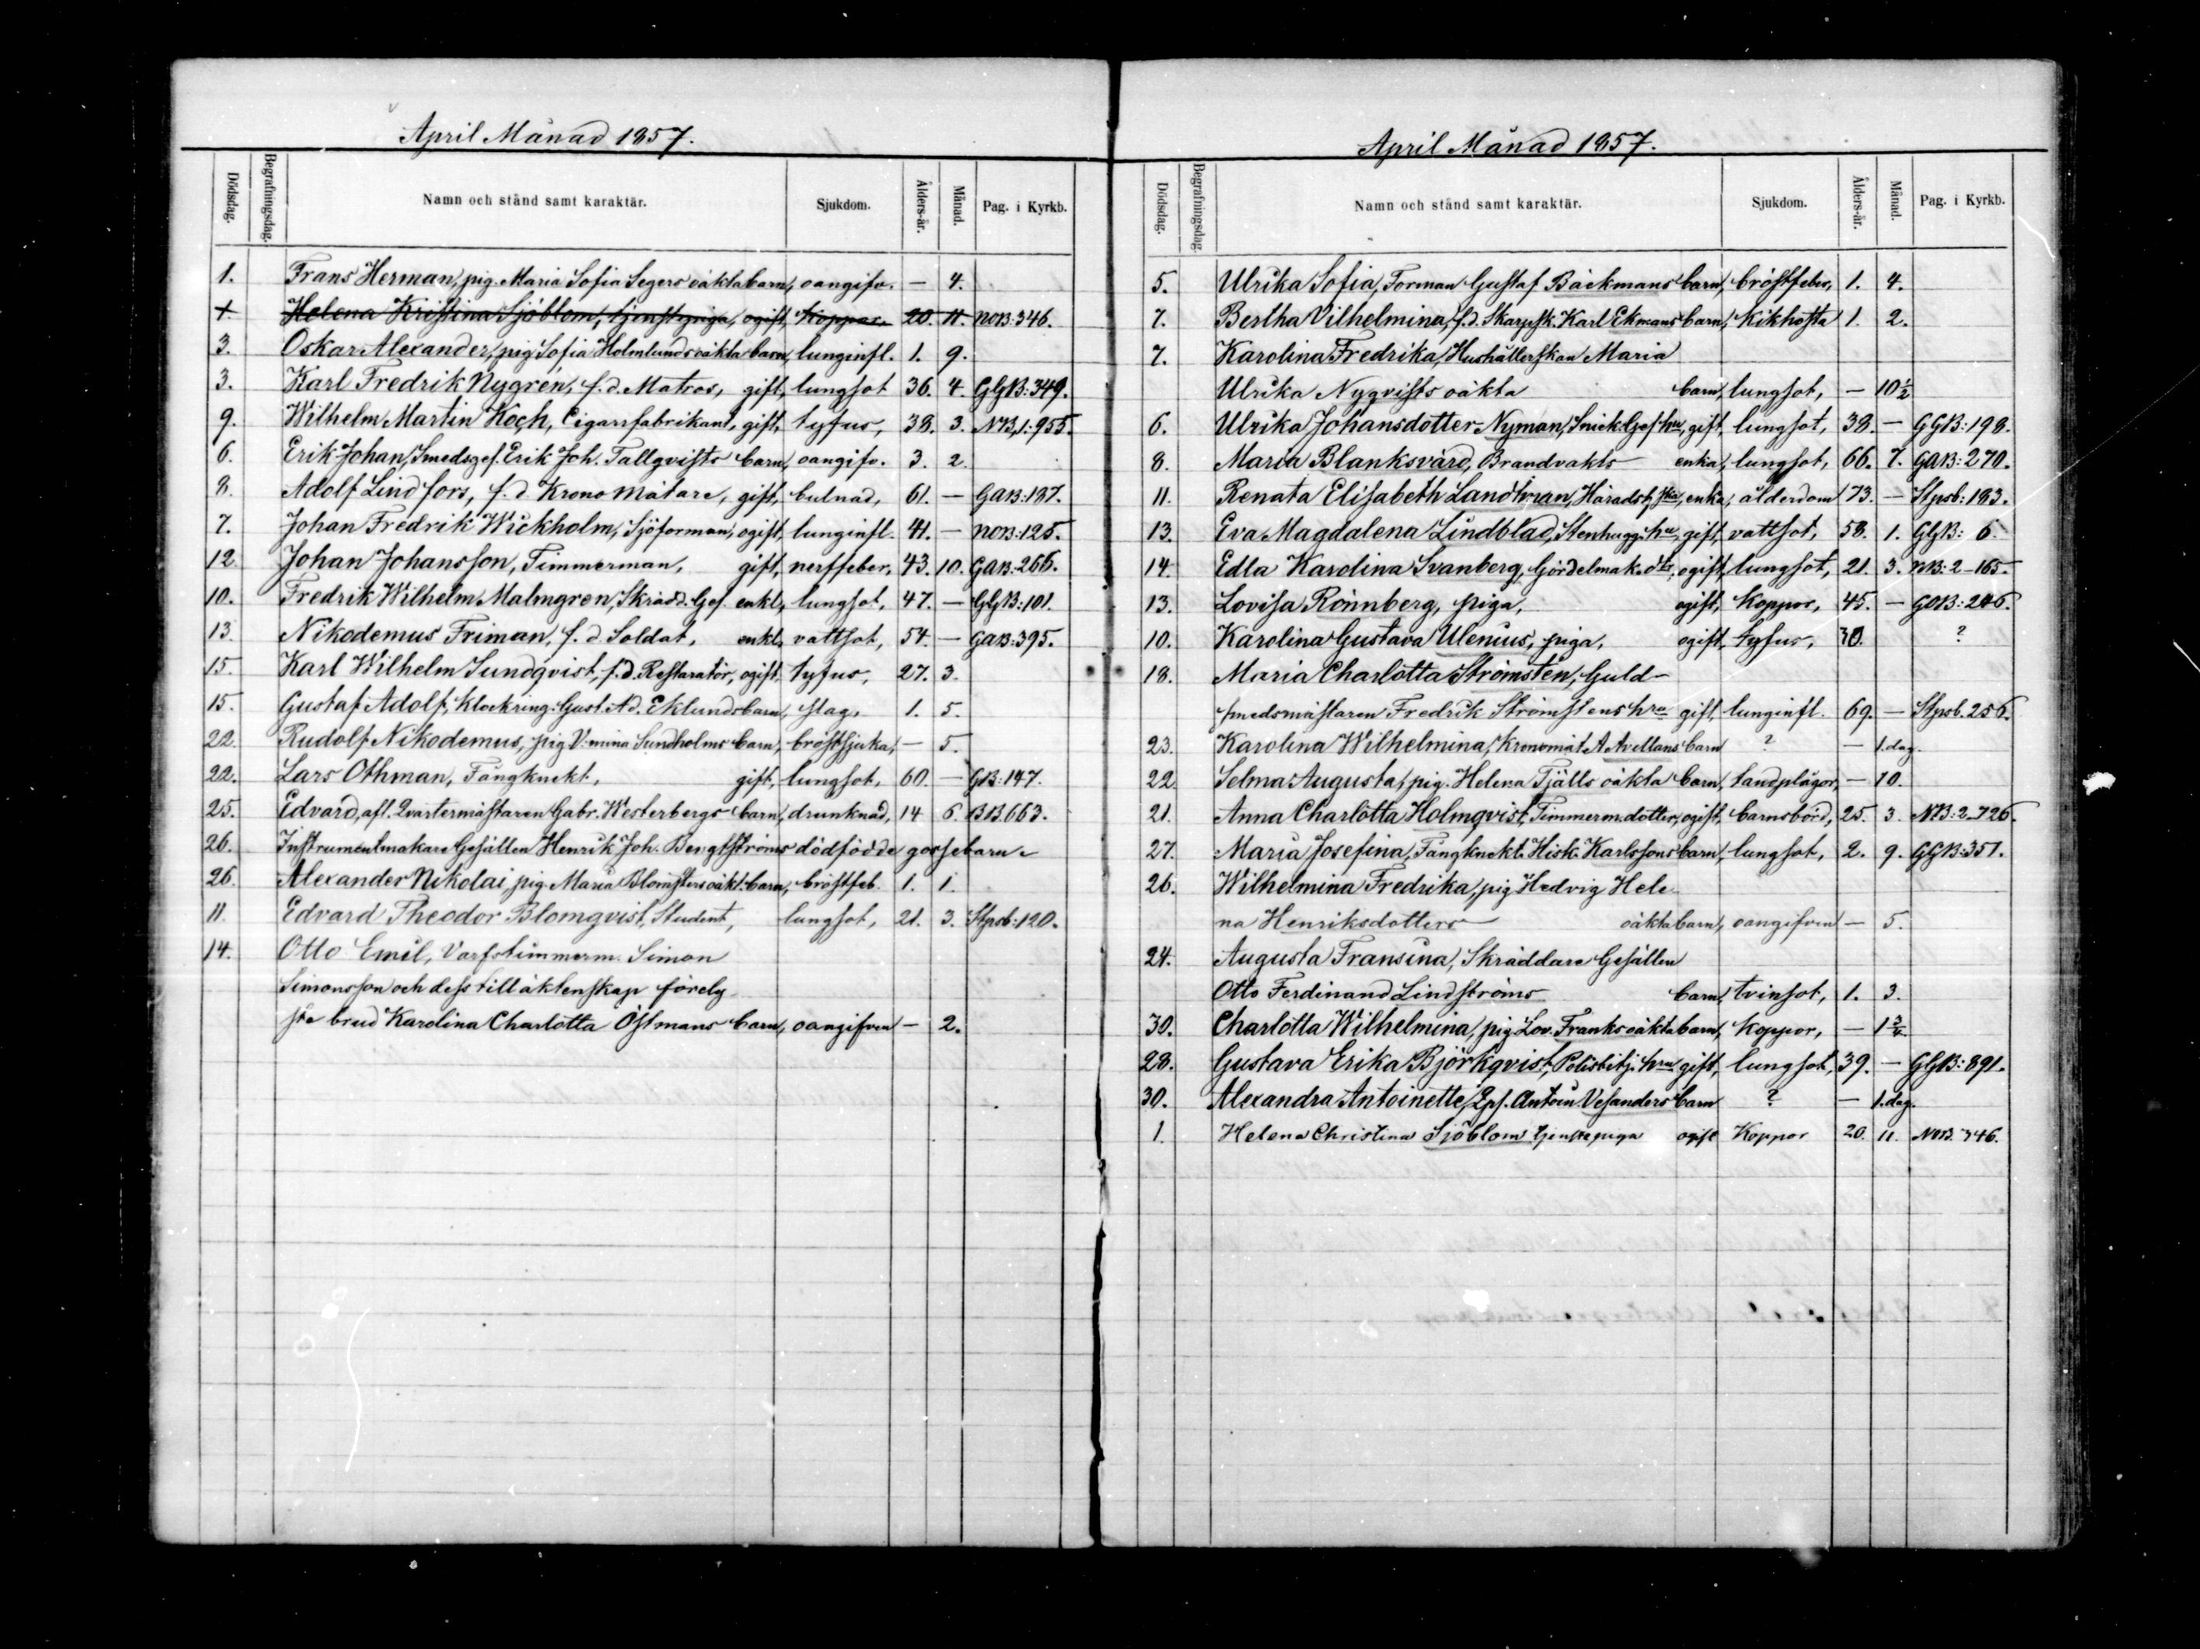 April Månad 1857.
Dödsdag. Begrafningsdag. Namn och stånd samt karaktär. Sjukdom. Ålders-år. Månad. Pag. i Kyrkb.
1. Frans Herman, pig. Maria Sofia Segers oäkta barn, oangifv. — 4.
1. Helena Kristina Sjöblom, tjenstpiga, ogift, Koppor. 20. 11. NOB: 346.
3. Oskar Alexander, pig Sofia Holmlunds oäkta barn, lunginfl. 1. 9.
3. Karl Fredrik Nygren, f.d. Matros, gift, lungsot 36. 4. GGB: 349.
9. Wilhelm Martin Koch, Cigarrfabrikant, gift, tyfus, 38. 3. NB,1: 955.
6. Erik Johan, Smedsges. Erik Joh. Tallqvists barn, oangifv. 3. 2.
8. Adolf Lindfors, f.d. Krono Mätare, gift, bulnad, 61. — GAB: 187.
7. Johan Fredrik Wickholm, Sjöforman, ogift, lunginfl. 41. — NOB: 125.
12. Johan Johansson, Timmerman, gift, nerffeber, 43. 10. GAB: 266.
10. Fredrik Wilhelm Malmgren, Skrädd. Ges. enkl., lungsot, 47. — GGB: 101.
13. Nikodemus Friman, f.d. Soldat, enkl, vattsot, 54. — GAB: 395.
15. Karl Wilhelm Sundqvist, f.d. Restaratör, ogift, tyfus, 27. 3.
15. Gustaf Adolf, Klockring. Gust. Ad. Eklunds barn, slag, 1. 5.
22. Rudolf Nikodemus, pig V:mina Sundholms barn, bröstsjuka, — 5.
22. Lars Othman, Fångknekt, gift, lungsot, 60. — GB: 147.
25. Edvard, afl. Qvartermästaren Gabr. Westerbergs barn, drunknad, 14 6. BB. 663.
26. Instrumentmakare Gesällen Henrik Joh. Bengtströms dödfödde gossebarn.
26. Alexander Nikolai, pig. Maria Blomsters oäkt. barn, bröstfeb. 1. 1.
11. Edvard Theodor Blomqvist, Student, lungsot, 21. 3. Stpsb: 120.
14. Otto Emil, Varfstimmerm. Simon
Simonsson och dess till äktenskap förely-
ste brud Karolina Charlotta Östmans barn, oangifven — 2.
April Månad 1857.
Dödsdag. Begrafningsdag. Namn och stånd samt karaktär. Sjukdom. Ålders-år. Månad. Pag. i Kyrkb.
5. Ulrika Sofia, Forman Gustaf Bäckmans barn, bröstfeber, 1. 4.
7. Bertha Vilhelmina, f.d. Skarpsk. Karl Ekmans barn, Kikhosta 1. 2.
7. Karolina Fredrika, Hushållerskan Maria
Ulrika Nyqvists oäkta barn, lungsot, — 10½
6. Ulrika Johansdotter-Nyman, Snick. Ges. hu, gift, lungsot, 38. — GGB: 198.
8. Maria Blanksvärd, Brandvakts enka, lungsot, 66. 7. GAB: 270.
11. Renata Elisabeth Landtman, Häradsh.ska, enka, ålderdom 73. — Stpsb: 183.
13. Eva Magdalena Lindblad, Stenhugg. hu, gift, vattsot, 58. 1. GGB: 6.
14. Edla Karolina Svanberg, Gördelmak. dtr, ogift, lungsot, 21. 3. NB: 2-165.
13. Lovisa Rönnberg, piga, ogift, Koppor, 45. — GOB: 246.
10. Karolina Gustava Ulenius, piga, ogift, tyfus, 30. ?
18. Maria Charlotta Strömsten, Guld-
smedsmästaren Fredrik Strömstens hra gift, lunginfl. 69. — Stpsb. 256.
23. Karolina Wilhelmina, Kronomät. A Avellans barn ? — 1. dag.
22. Selma Augusta, pig. Helena Fjälls oäkta barn, tandplågor, — 10.
21. Anna Charlotta Holmqvist, Timmerm. dotter, ogift, barnsbörd, 25. 3. NB: 2-726.
27. Maria Josefina, Fångknekt. Hisk. Karlssons barn, lungsot, 2. 9. GGB: 351.
26. Wilhelmina Fredrika, pig Hedvig Hele-
na Henriksdotters oäkta barn, oangifven — 5.
24. Augusta Fransina, Skräddare Gesällen
Otto Ferdinand Lindströms barn, tvinsot, 1. 3.
30. Charlotta Wilhelmina, pig Lov. Franks oäkta barn, Koppor, — 1¾
28. Gustava Erika Björkqvist, Polisbitj. hru gift, lungsot, 39. — GGB: 891.
30. Alexandra Antoinette, Eps. Antoin Vesanders barn ? — 1. dag.
1. Helena Christina Sjöblom tjenstepiga ogift Koppor 20. 11. NOB. 346.